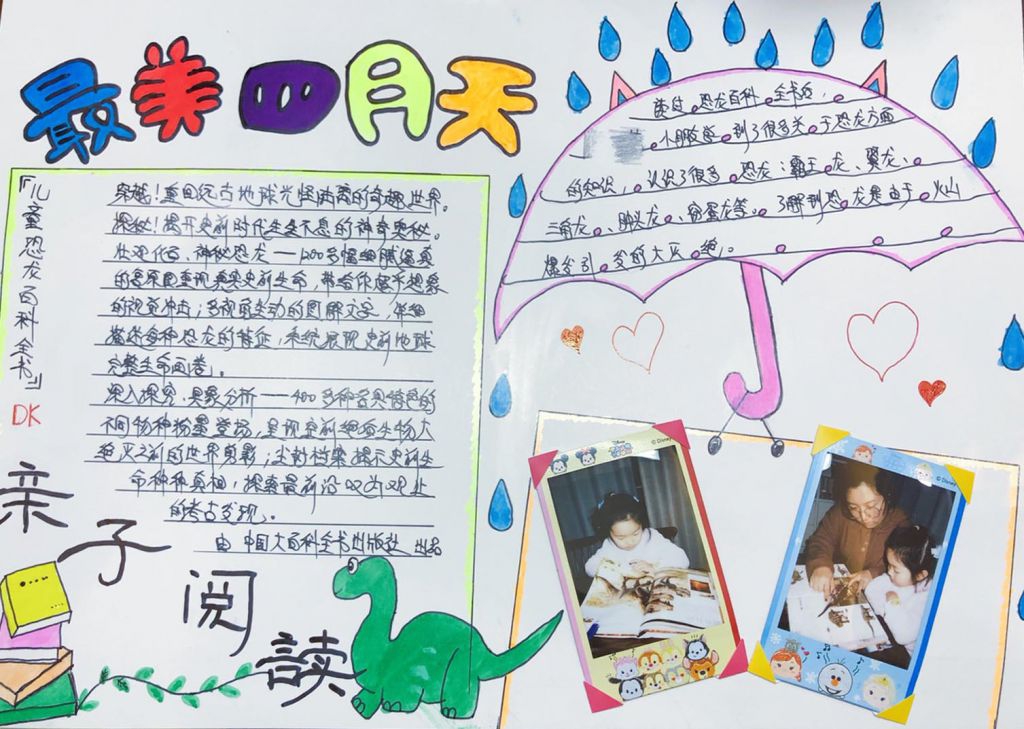 最美四月天
『儿童恐龙百科全书』
DK
穿越！重回远古地球光怪陆离的奇趣世界。
探秘！揭开史前时代生生不息的神奇奥秘。
壮观化石、神秘恐龙——1200多幅细腻逼真
的复原图重现真实史前生命，带给你超乎想象
的视觉冲击；多视角生动的图解文字，详细
描述每种恐龙的特征，系统展现史前地球
完整生命画卷。
深入探究，具象分析——400多种各具特色的
不同物种粉墨登场，呈现空前绝后生物大
绝灭之前的世界真影，尘封档案揭示史前生
命种种真相，探索最前沿
的考古发现。
由 中国大百科全书出版社 出品
亲子阅读
读过恐龙百科全书后，
小朋友学到了很多关于恐龙方面
的知识，认识了很多恐龙：霸王龙、翼龙、
三角龙、肿头龙、窃蛋龙等。了解到恐龙是由于火山
爆发引发的大灭绝。
© Disney
Disney
© Disney